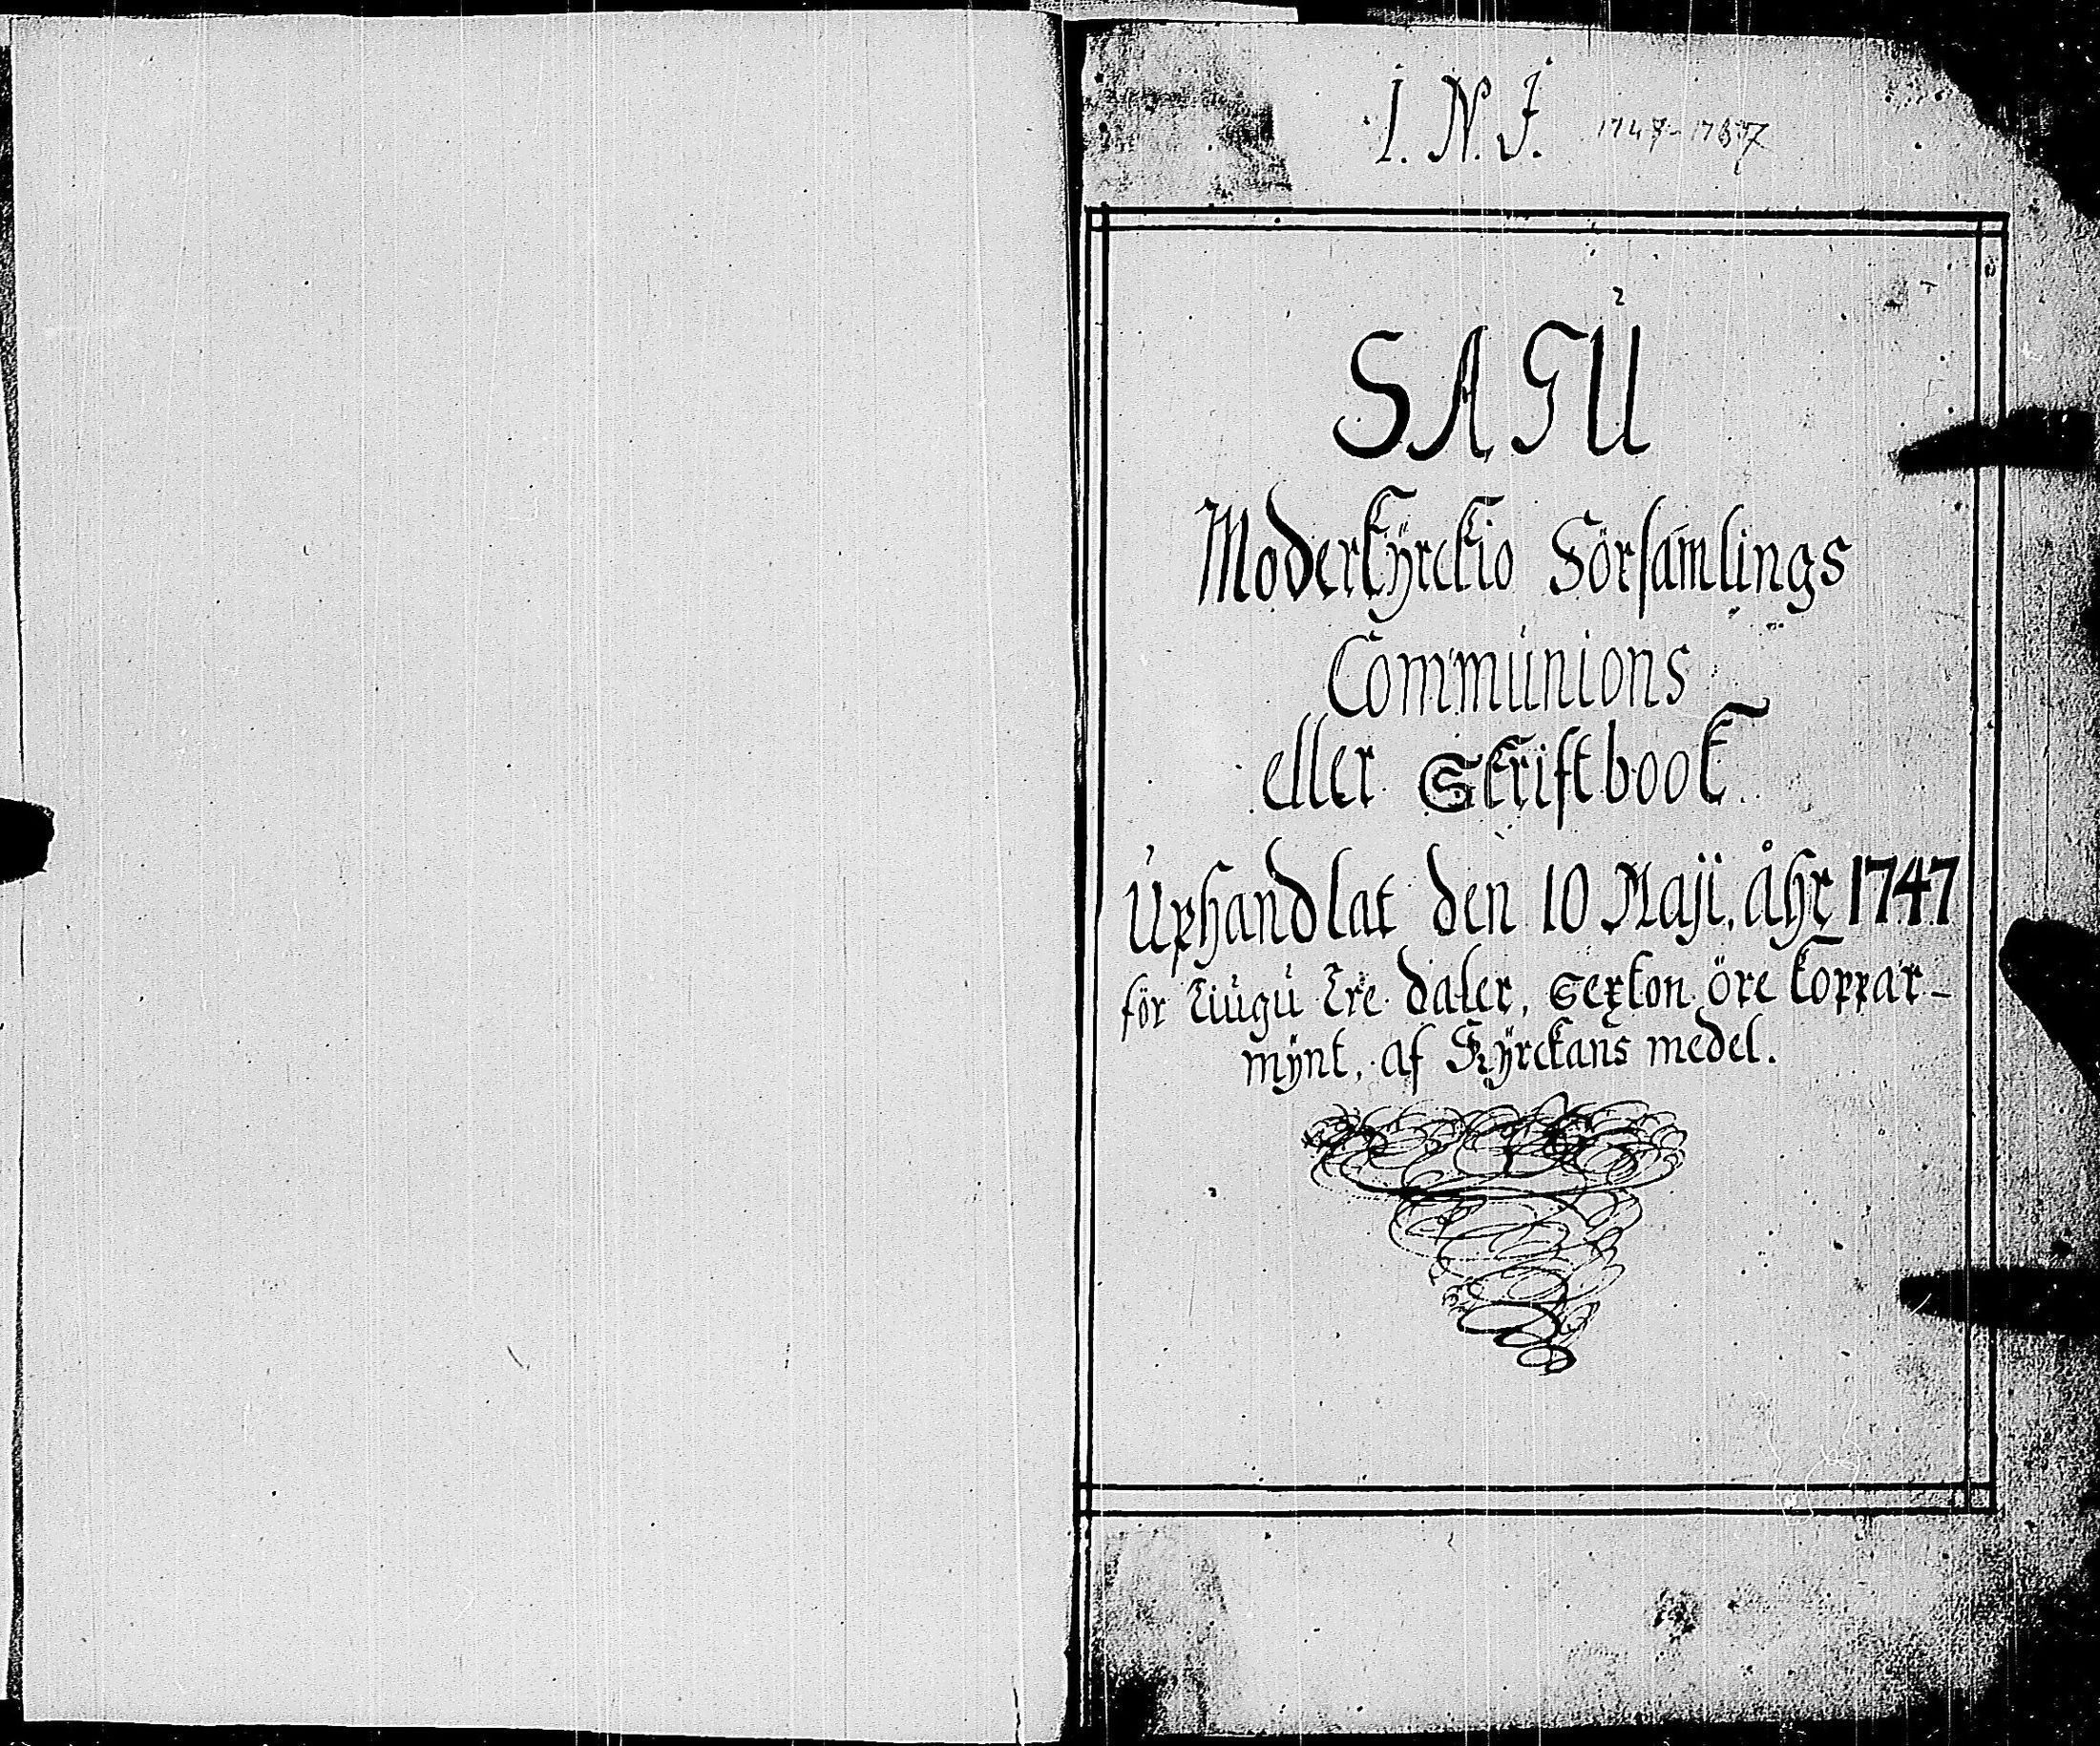 I. N. J. 1747-1767
SAGU
Moderkÿrckio Församlings
Communions
eller Skriftbook
Uphandlat den 10 Maji, åhr 1747
för Tiugu Tre daler, Sexton öre koppar-
mÿnt, af Kÿrckans medel.